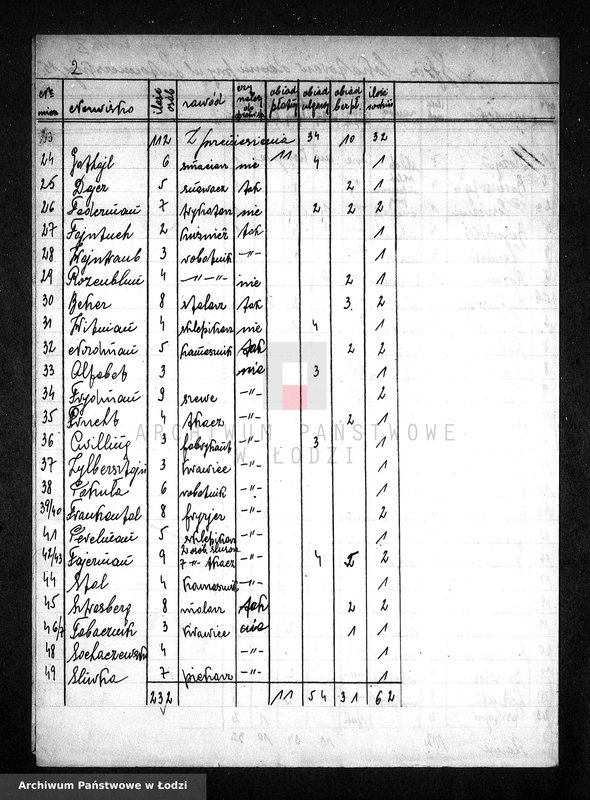 2
№ miesz. Nazwisko ilość osób zawód czy należy do obiad płatny obiad ulgowy obiad bezpł. ilość rodzin
23 112 Z przeniesienia 11 34 10 32
24 6 nie 4 1
25 Dajer 5 tak 2 1
26 Federman 7 nie 2 2 2
27 Fajntuch 2 tak 1
28 Wajntraub 3 robotnik -"- 1
29 Rozenblum 4 -"-"- nie 2 1
30 Beker 8 stolarz tak 3 2
31 Witman 4 sklepikarz nie 4 1
32 Nordman 5 kamasznik tak 2 2
33 Alfabet 3 nie 3 1
34 Frydman 9 szewc -"- 2
35 4 tkacz -"- 2 1
36 Cwilling 3 fabrykant -"- 3 1
37 Zylbersztajn 3 krawiec -"- 1
38 Pakuła 6 robotnik -"- 1
39/40 Frankental 8 fryzjer -"- 2
41 Perelman 5 sklepikarz -"- 1
42/43 Fajerman 9 7 -"- tkacz -"- 4 2
44 Stal 4 kamasznik -"- 1
45 Strasberg 8 malarz tak 2 2
46/7 Tabacznik 3 krawiec nie 1 1
48 Sochaczewski 4 -"- 1
49 Śliwka 7 piekarz -"- 1
232 11 54 31 62
ARCHIWUM PAŃSTWOWE
W ŁODZI
Archiwum Państwowe w Łodzi